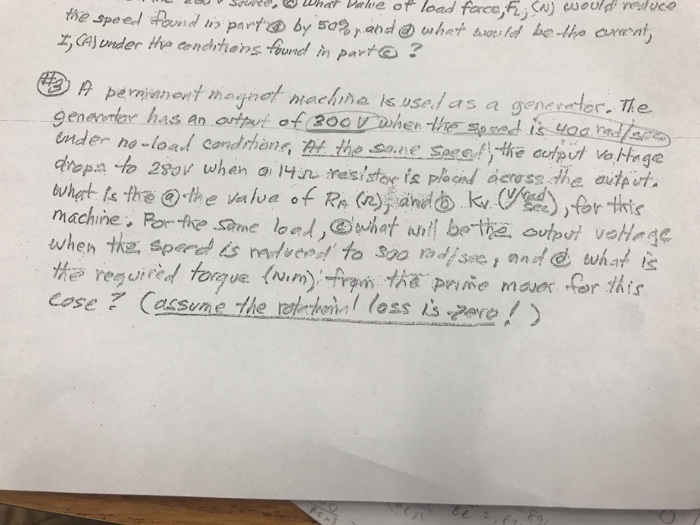 source, (c) what value of load force, FL, (N) would reduce
the speed found in part (a) by 50%, and (d) what would be the current,
I, (A) under the conditions found in part (c) ?
#3 A permanent magnet machine is used as a generator. The
generator has an output of 300V when the speed is 400 rad/sec
under no-load conditions, At the same speed, the output voltage
drops to 280V when a 14Ω resistor is placed across the output.
What is the (a) the value of RA (Ω), and (b) Kv (V/rad/sec), for this
machine. For the same load, (c) what will be the output voltage
when the speed is reduced to 300 rad/sec, and (d) what is
the required torque (N.m), from the prime mover for this
case ? (assume the rotational loss is zero! )